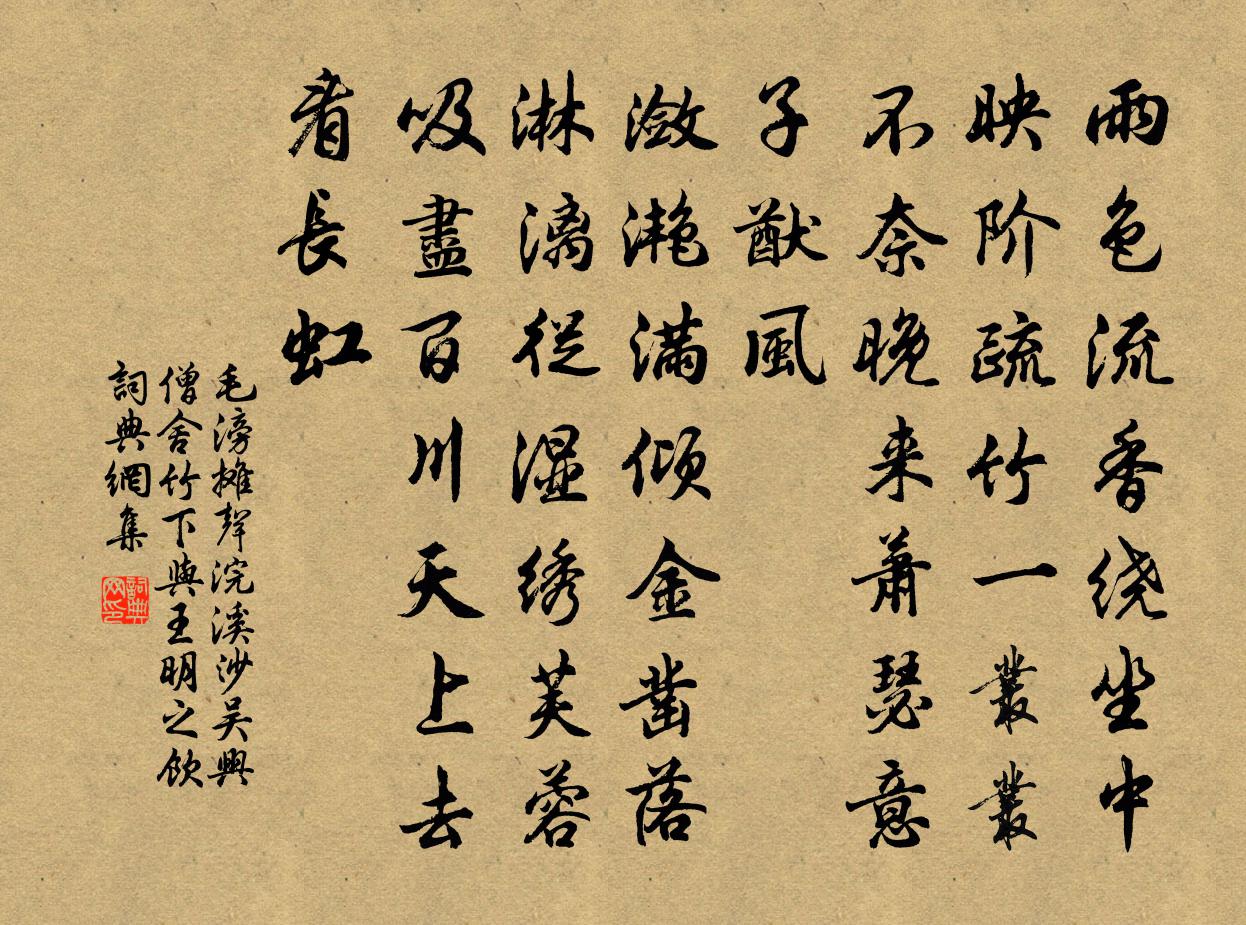 雨色流香绕坐中
映阶疏竹一叢叢
不奈晚来萧瑟意
子猷風
潋滟满倾金凿落
淋漓从湿绣芙蓉
吸盡百川天上去
看長虹
毛滂摊聲浣溪沙吴興
僧舍竹下與王明之飲
詞典網集
詞典网印